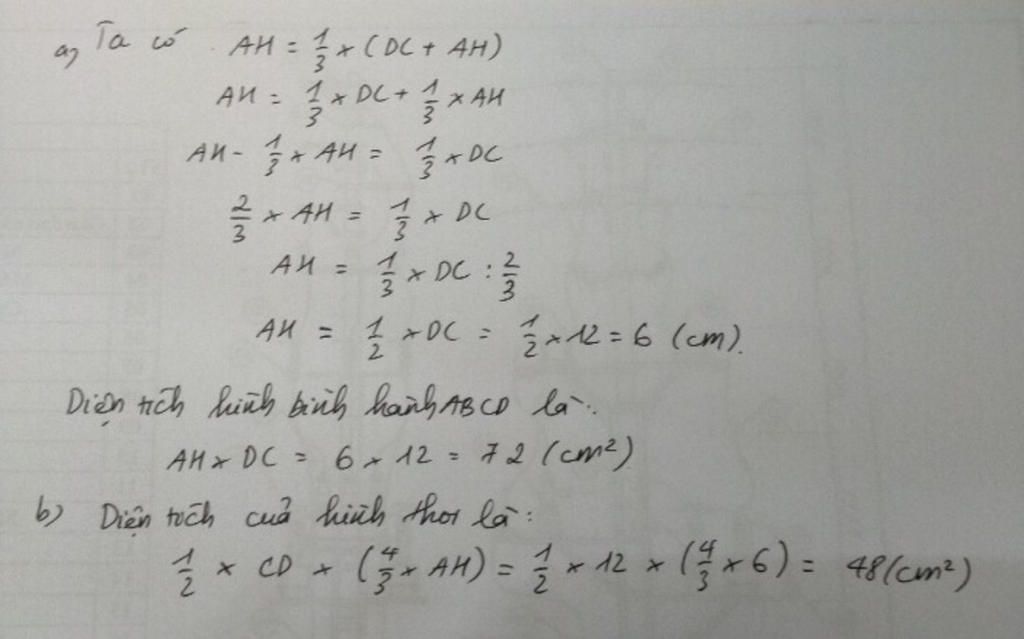 a, Ta có AH = 1/3 × (DC + AH)
AH = 1/3 × DC + 1/3 × AH
AH - 1/3 × AH = 1/3 × DC
2/3 × AH = 1/3 × DC
AH = 1/3 × DC : 2/3
AH = 1/2 × DC = 1/2 × 12 = 6 (cm).
Diện tích hình bình hành ABCD là:
AH × DC = 6 × 12 = 72 (cm²)
b) Diện tích cuả hình thoi là:
1/2 × CD × (4/3 × AH) = 1/2 × 12 × (4/3 × 6) = 48 (cm²)